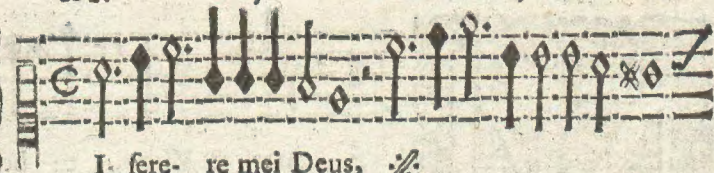 I sere- re mei Deus, ·//·